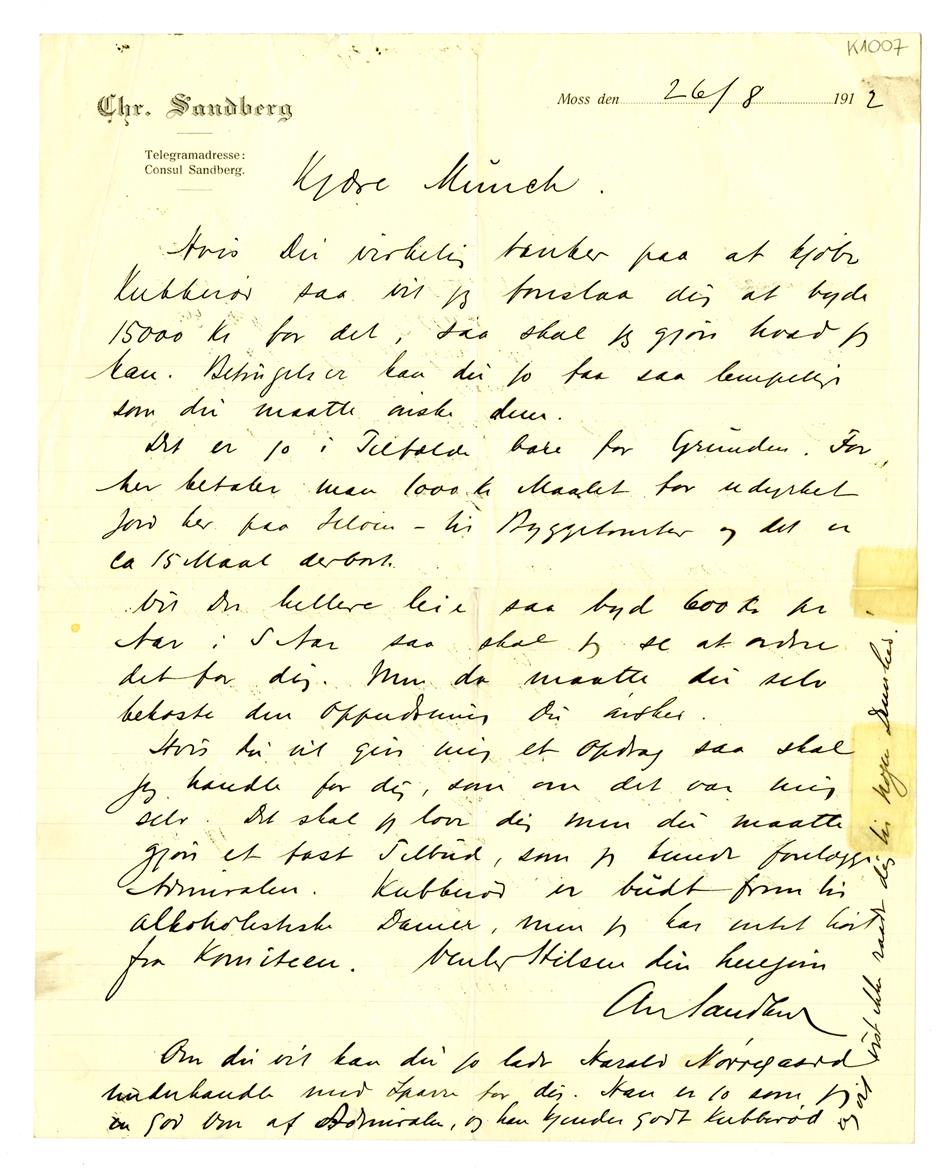 K1007
Chr. Sandberg
Moss den 26/8 1912
Telegramadresse:
Consul Sandberg.
Kjære Munch.
Hvis Du virkelig tænker paa at kjøbe
Kubberød saa vil jeg foreslaa dig at byde
15000 Kr for det, saa skal jeg gjøre hvad jeg
kan. Betingelser kan du jo faa saa lempelige
som du maatte ønske dem.
Det er jo i Tilfælde bare for Grunden. For
her betaler man 1000 kr Maalet for udyrket
Jord her paa Jeløen – til Byggetomter og det er
ca 15 Maal derbort.
Vil Du hellere leie saa byd 600 Kr pr
Aar i 5 Aar saa skal jeg se at ordne
det for dig. Men da maatte du selv
bekoste den Oppudsning Du ønsker.
Hvis du vil give mig et Opdrag saa skal
jeg handle for dig, som om det var mig
selv. Det skal jeg love dig men du maatte
gjøre et fast Tilbud, som jeg kunde forelægge
Admiralen. Kubberød er budt frem til
alkoholistiske Damer, men jeg har intet hørt
fra Komiteen. Venlig Hilsen din hengivne
Chr Sandberg
Om du vil kan du jo lade Harald Nørregaard
underhandle med Sparre for dig. Han er jo som jeg
en god Ven af Admiralen, og han kjender godt Kubberød
og vil vist ikke raade dig til nogen Dumhed.